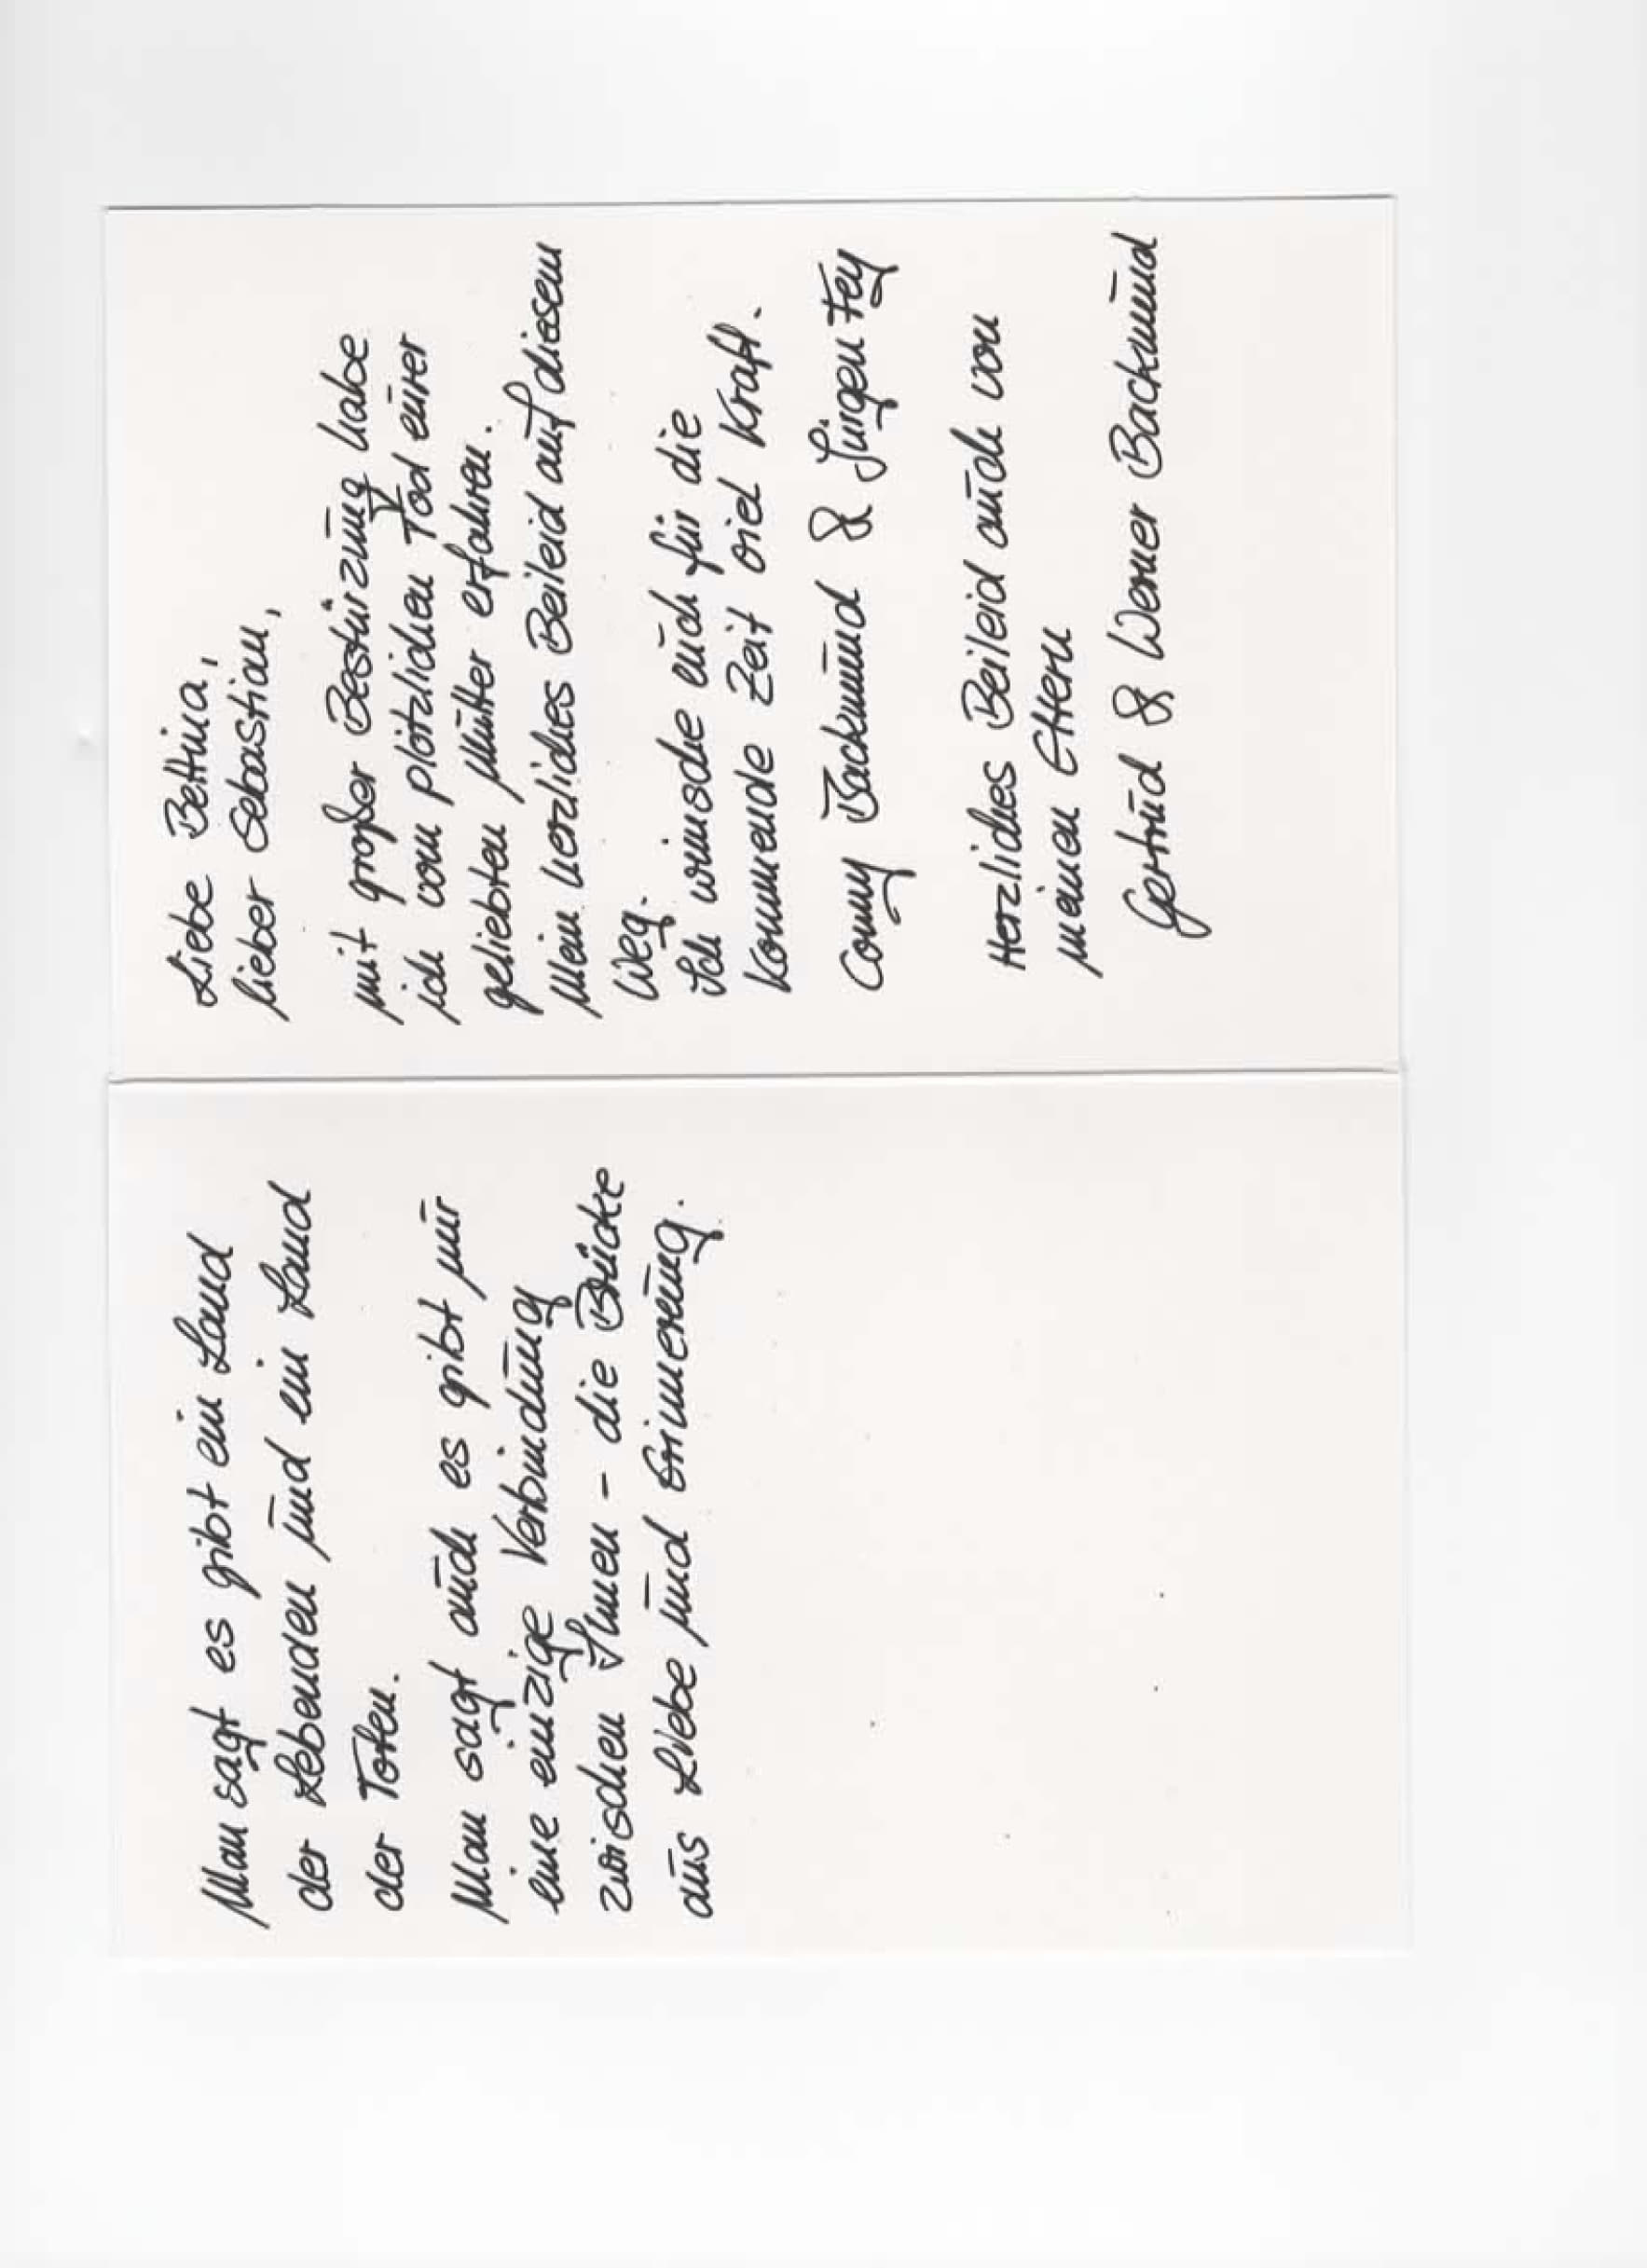 Man sagt es gibt ein Land
der Lebenden und ein Land
der Toten.
Man sagt auch es gibt nur
eine einzige Verbindung
zwischen Ihnen - die Brücke
aus Liebe und Erinnerung.
Liebe Bettina,
lieber Sebastian,
mit großer Bestürzung habe
ich vom plötzlichen Tod eurer
geliebten Mutter erfahren.
Mein herzliches Beileid auf diesem
Weg.
Ich wünsche euch für die
kommende Zeit viel Kraft.
Conny Backmund & Jürgen Fey
Herzliches Beileid auch von
meinen Eltern
Gertrud & Werner Backmund